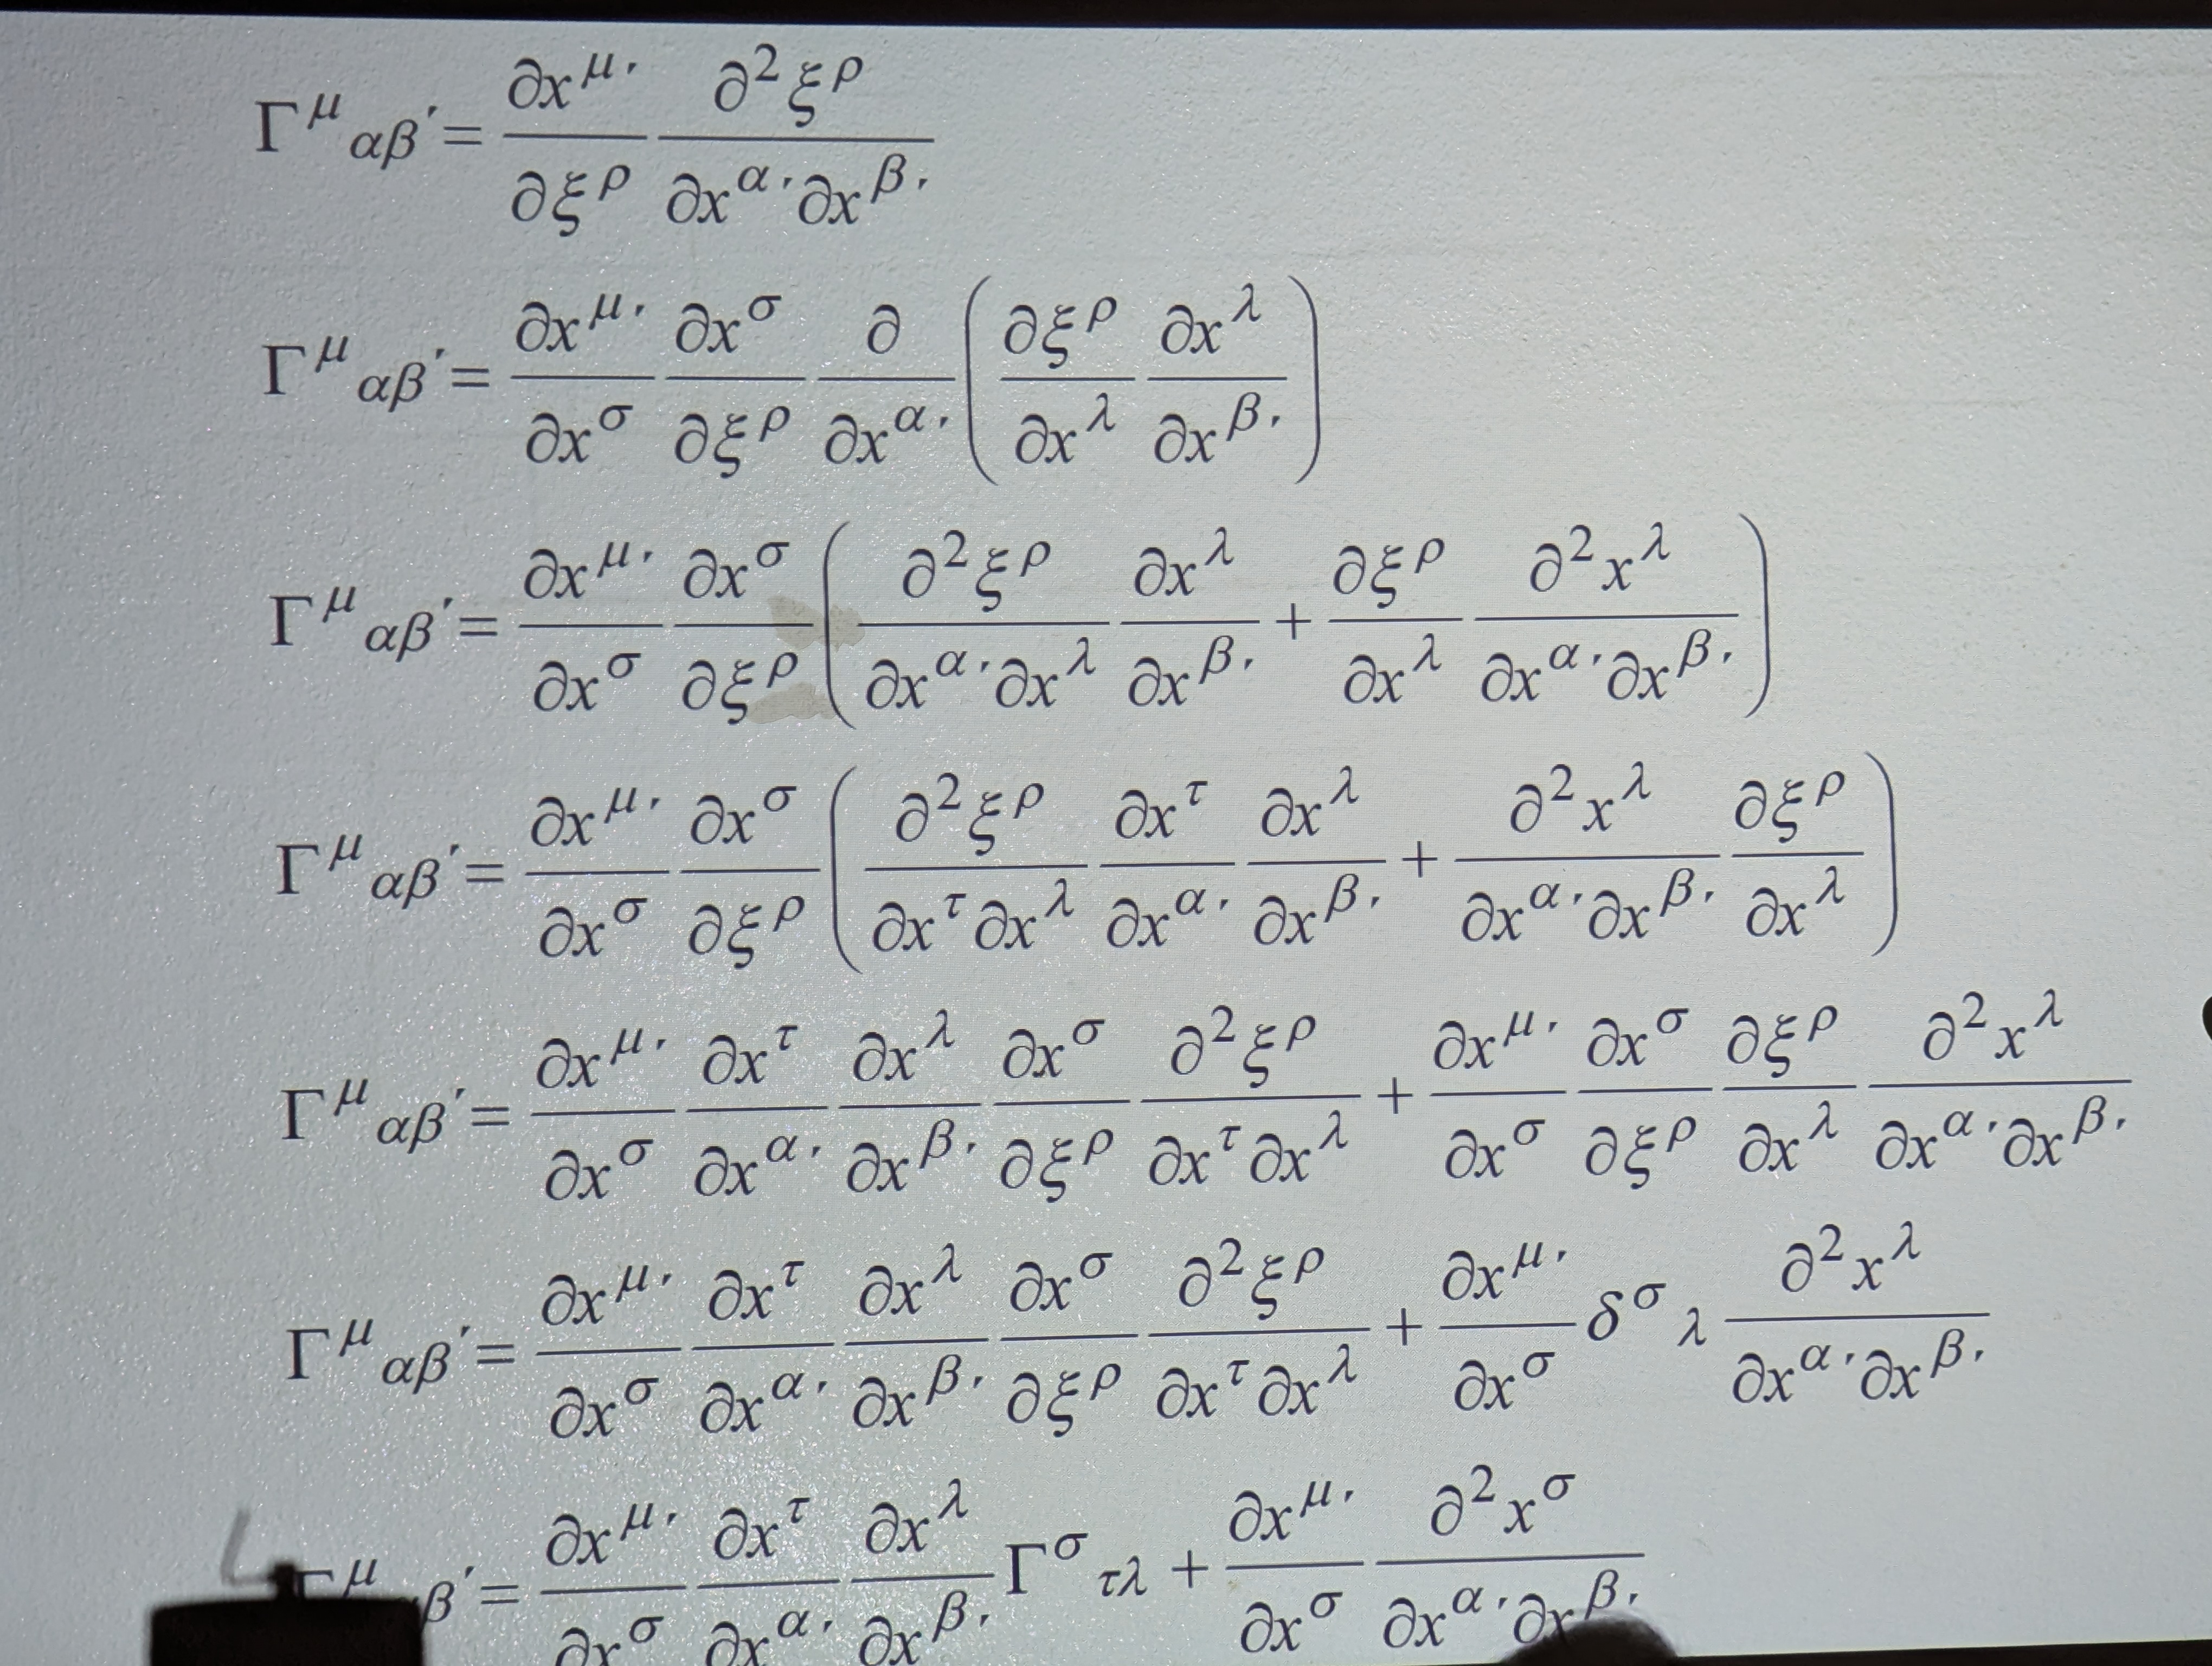 Γ^μ_αβ' = ∂x^μ'/∂ξ^ρ ∂²ξ^ρ/∂x^α'∂x^β'
Γ^μ_αβ' = ∂x^μ'/∂x^σ ∂x^σ/∂ξ^ρ ∂/∂x^α' (∂ξ^ρ/∂x^λ ∂x^λ/∂x^β')
Γ^μ_αβ' = ∂x^μ'/∂x^σ ∂x^σ/∂ξ^ρ (∂²ξ^ρ/∂x^α'∂x^λ ∂x^λ/∂x^β' + ∂ξ^ρ/∂x^λ ∂²x^λ/∂x^α'∂x^β')
Γ^μ_αβ' = ∂x^μ'/∂x^σ ∂x^σ/∂ξ^ρ (∂²ξ^ρ/∂x^τ∂x^λ ∂x^τ/∂x^α' ∂x^λ/∂x^β' + ∂²x^λ/∂x^α'∂x^β' ∂ξ^ρ/∂x^λ)
Γ^μ_αβ' = ∂x^μ'/∂x^σ ∂x^τ/∂x^α' ∂x^λ/∂x^β' ∂x^σ/∂ξ^ρ ∂²ξ^ρ/∂x^τ∂x^λ + ∂x^μ'/∂x^σ ∂x^σ/∂ξ^ρ ∂ξ^ρ/∂x^λ ∂²x^λ/∂x^α'∂x^β'
Γ^μ_αβ' = ∂x^μ'/∂x^σ ∂x^τ/∂x^α' ∂x^λ/∂x^β' ∂x^σ/∂ξ^ρ ∂²ξ^ρ/∂x^τ∂x^λ + ∂x^μ'/∂x^σ δ^σ_λ ∂²x^λ/∂x^α'∂x^β'
Γ^μ_αβ' = ∂x^μ'/∂x^σ ∂x^τ/∂x^α' ∂x^λ/∂x^β' Γ^σ_τλ + ∂x^μ'/∂x^σ ∂²x^σ/∂x^α'∂x^β'